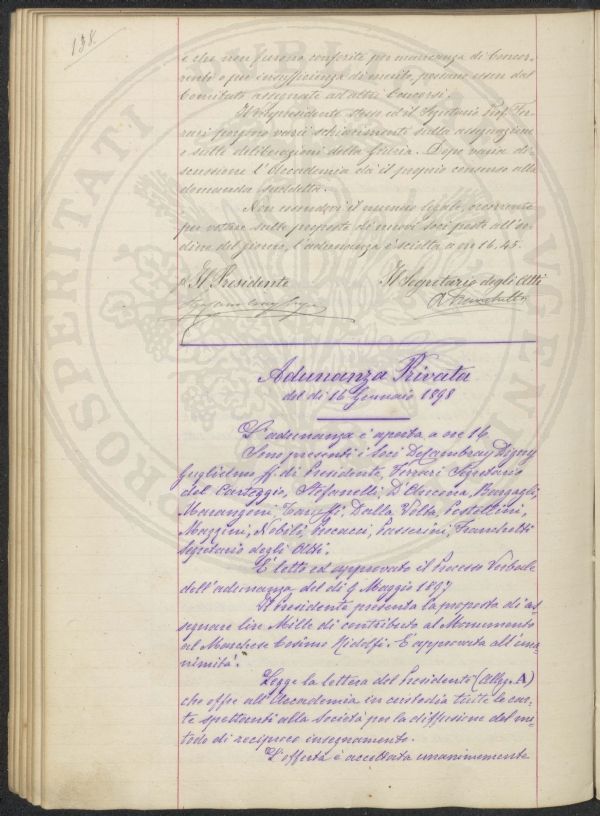 138.
e che non furono conferite per mancanza di Concor-
renti o per insufficienza di merito, possano esser dal
Comitato assegnate ad altri Concorsi.
Il Vicepresidente stesso ed il Segretario Prof. Fer-
rari porgono varii schiarimenti sulla assegnazione
e sulle deliberazioni della Giuria. Dopo varia di-
scussione l'Accademia dà il proprio consenso alla
domanda suddetta.
Non essendovi il numero legale, occorrente
per votare sulle proposte di nuovi Soci poste all'or-
dine del giorno, l'adunanza è sciolta a ore 16.45.
Il Presidente
Il Segretario degli Atti
Adunanza Privata
del dì 16 Gennaio 1898
L'adunanza è aperta a ore 16.
Sono presenti i Soci DeCambray Digny
Guglielmo ff. di Presidente, Ferrari Segretario
del Carteggio, Stefanelli, D'Ancona, Bargagli,
Maranzoni, Caruffi, Dalla Volta, Pestellini,
Mazzini, Nobili, Pecacci, Passerini, Franchetti
Segretario degli Atti.
È letto ed approvato il Processo Verbale
dell'adunanza del dì 9 Maggio 1897
Il Presidente presenta la proposta di as-
segnare lire Mille di contributo al Monumento
al Marchese Cosimo Ridolfi. È approvata all'una-
nimità.
Legge la lettera del Presidente (Alleg. A)
che offre all'Accademia in custodia tutte le car-
te spettanti alla Società per la diffusione del me-
todo di reciproco insegnamento.
L'offerta è accettata unanimemente
PROSPERITATI PUBLICAE AUGENDAE